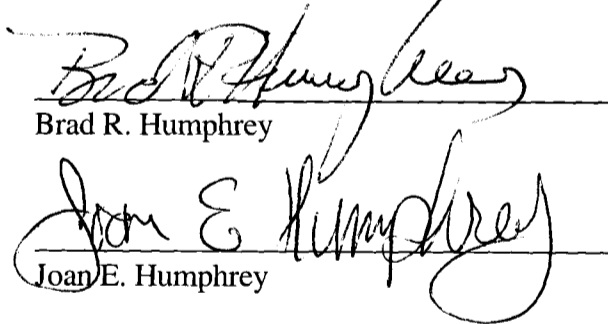 Brad R Humphrey
Brad R. Humphrey
Joan E Humphrey
Joan E. Humphrey